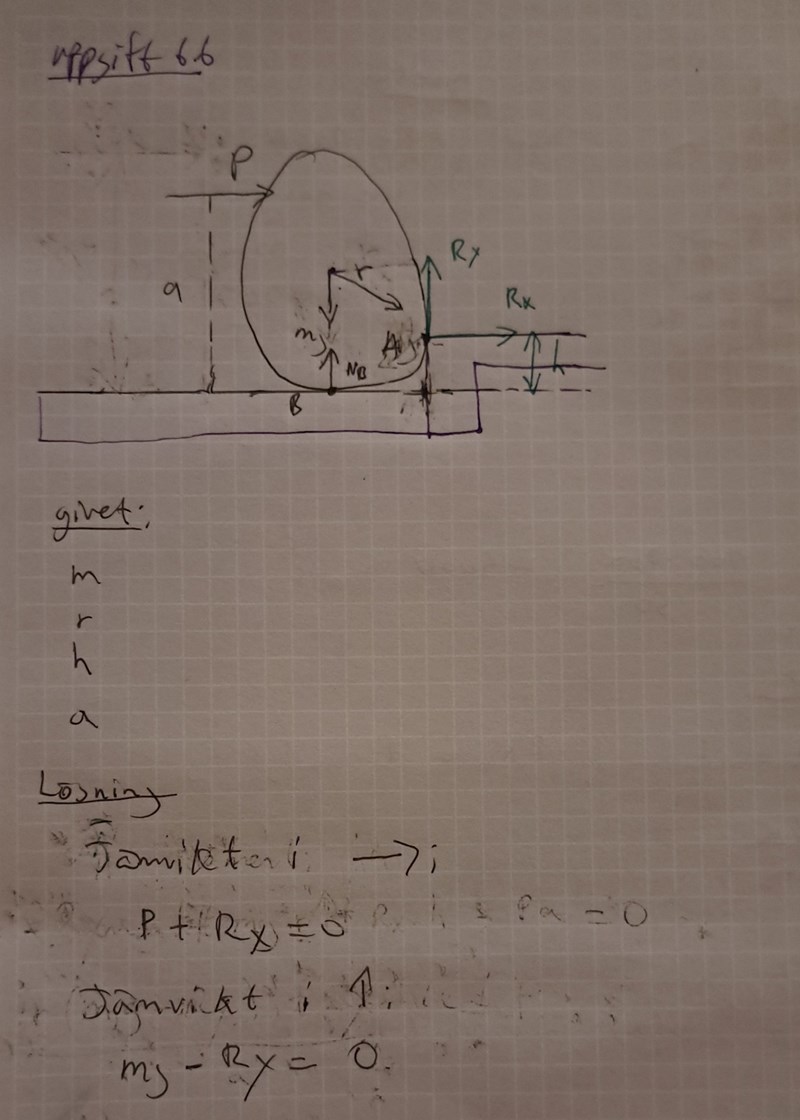 uppgift 6.6
P
Ry
a
r
Rx
mg
A
h
NB
B
givet:
m
r
h
a
Lösning
Jämvikt i →:
P + Rx = 0
Jämvikt i ↑:
mg - Ry = 0.